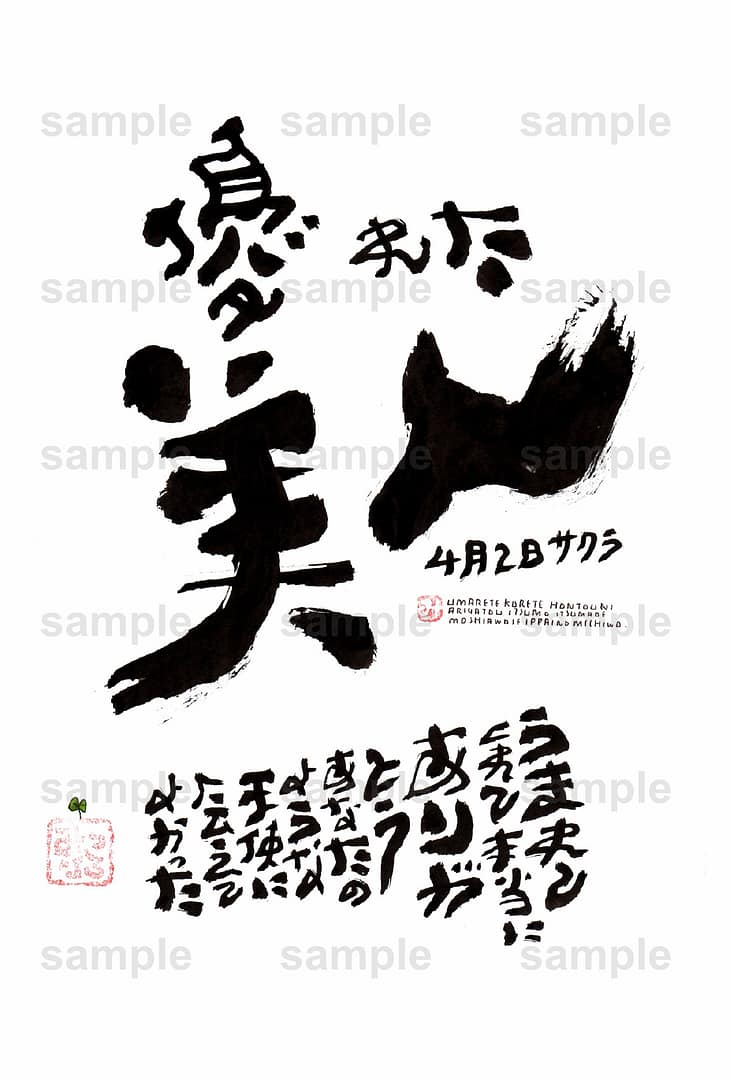 sample sample sample
優れた
sample sample sample
美人
sample sample sample
4月2日サクラ
UMARETE KURETE HONTOUNI
ARIGATOU ITSUMO ITSUMADE
MOSHIAWASE IPPAINO MICHIWO
sample sample sample
うまれて
くれて本当に
ありが
とう
あなたの
ような
天使に
出会えて
よかった
sample sample sample
sample sample sample